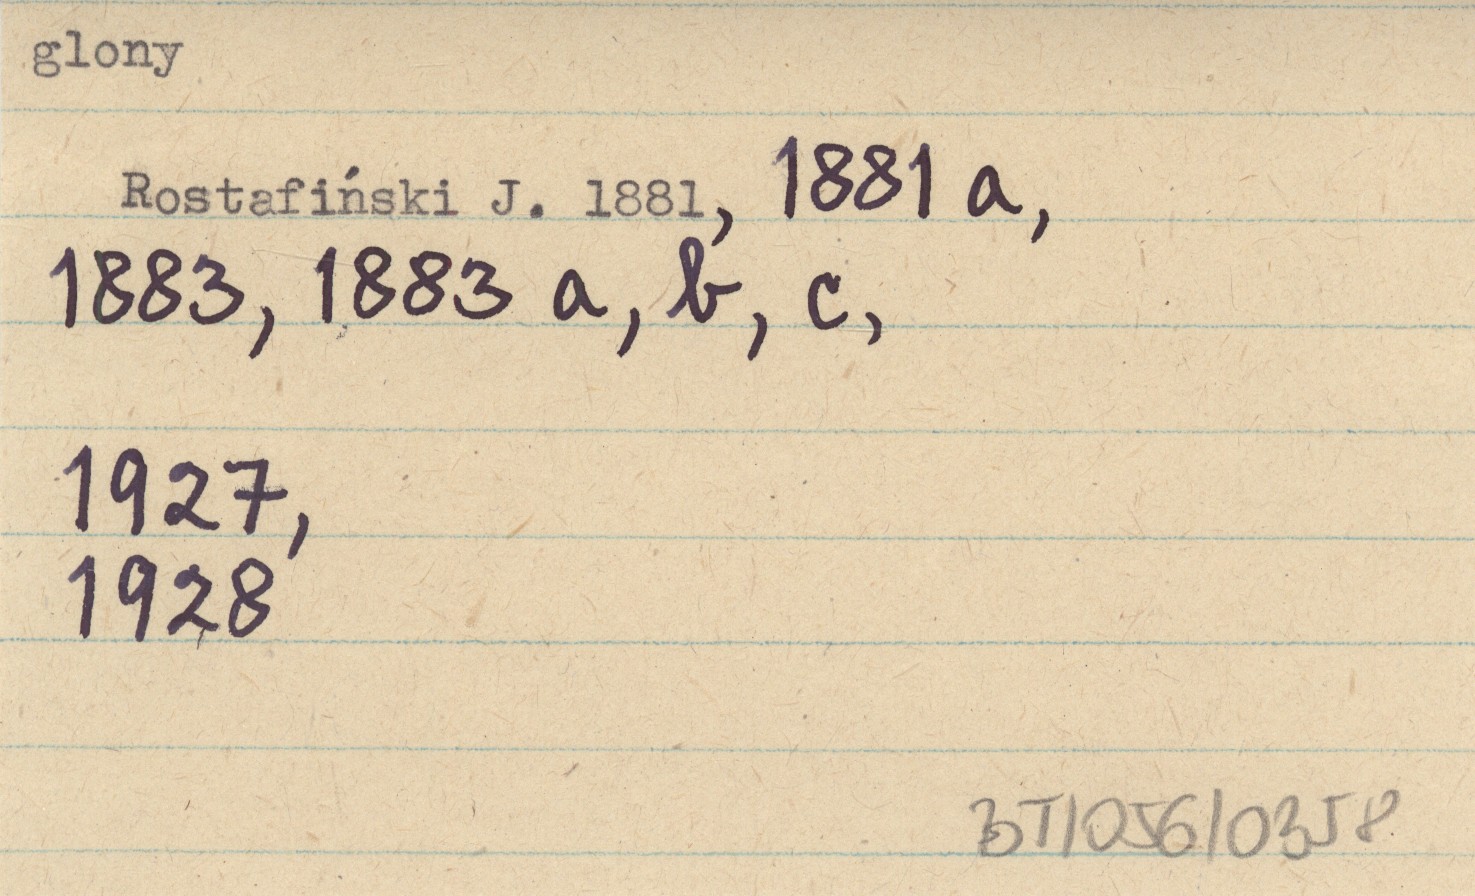 glony
Rostafiński J. 1881, 1881 a,
1883, 1883 a, b, c,
1927,
1928
BT/056/0358